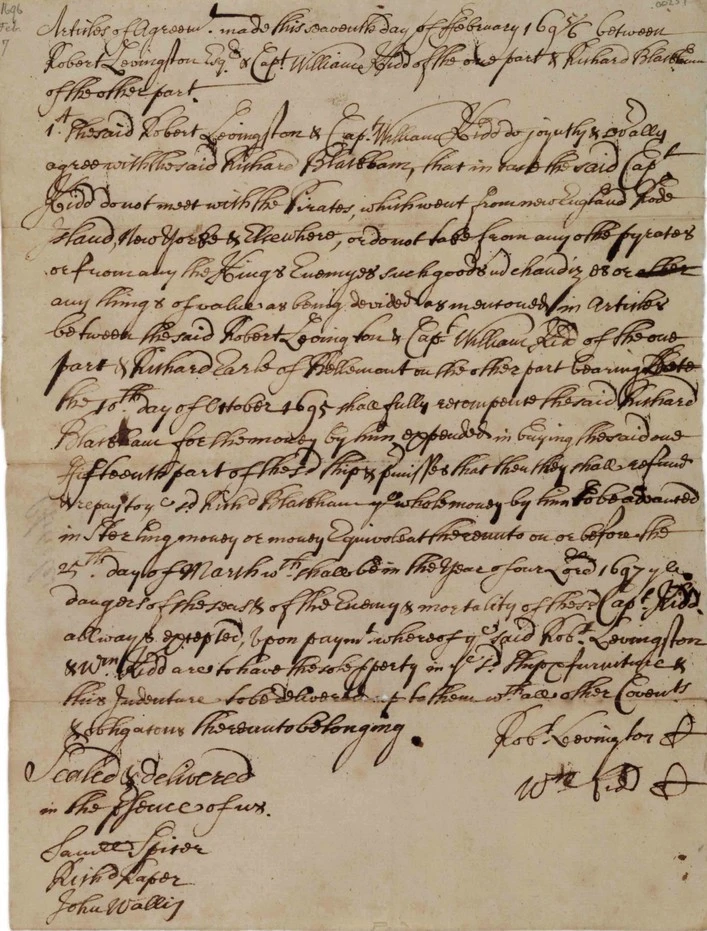 1696
Feb.
7
Articles of Agreemt. made this seaventh day of February 1695/6 between
Robert Levingston Esqr. & Capt. William Kidd of the one part & Richard Blackham
of the other part.
1st. The said Robert Levingston & Capt. William Kidd do joyntly & severally
agree with the said Richard Blackham, that in case the said Capt.
Kidd do not meet with the Pirates, which went from new England Rode
Island, New Yorke & Elsewhere, or do not take from any other pyrates
or from any the Kings Enemyes such goods merchandizes or other
any things of value as being devided as mentoned in Articles
between the said Robert Levingston & Capt William Kidd of the one
part & Richard Earle of Bellemont on the other part bearing Date
the 10th. day of October 1695 shall fully recompence the said Richard
Blackham for the money by him expended in buying the said one
Fifteenth part of the sd ship & pmisses that then they shall refund
& repay to ye sd Richd Blackham ye whole money by him to be advanced
in Sterling money or money Equivoleat thereunto on or before the
25th. day of March wch. shall be in the Year of our Lord 1697 ye
dangers of the seas & of the Enemy & mortality of the sd Capt. Kidd
allways excepted, Upon paymt. whereof ye said Robt. Levingston
& Wm Kidd are to have the sole pperty in ye sd ship & furniture &
this Indenture to be delivered up to them wth all other Covents
& obligatons thereunto belonging.
Robt. Levingston
Wm Kidd
Sealed & delivered
in the psence of us.
Samll Spiser
Richd Raper
John Wallis